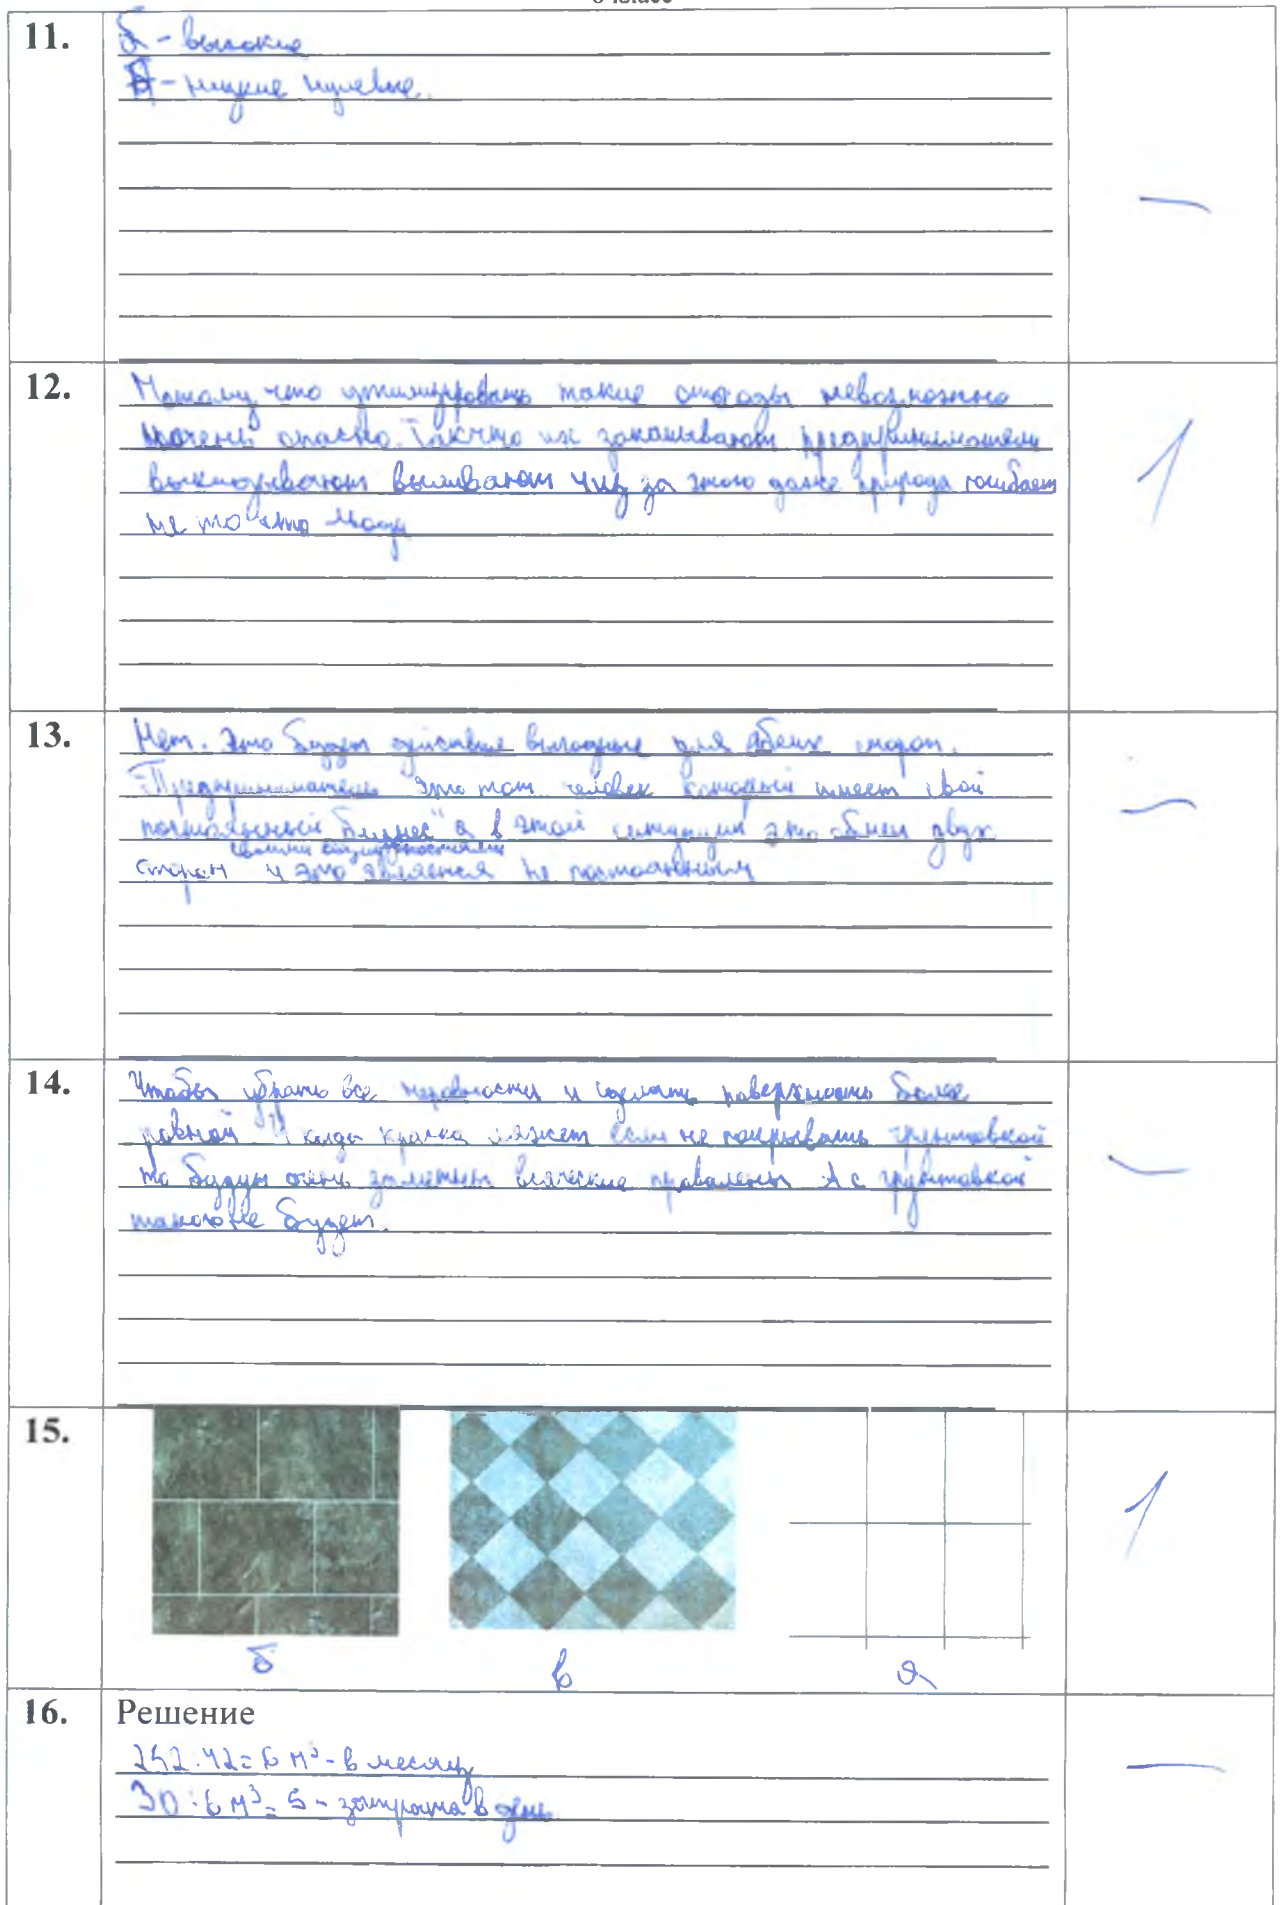 8 класс
11.
а - высокие
б - низкие нулевые.
—
12.
Потому что утилизировать такие отходы невозможно
опасно. Так что их закапывают предприниматели
выкидывают выливают из за этого даже природа погибает
не то что люди
1
13.
Нет. Это будет действие выгодные для обеих сторон.
"Предприниматель это тот человек который имеет свой
постоянный бизнес" а в этой ситуации это обмен двух
своими
сторон и это является не постоянным
—
14.
Чтобы убрать все неровности и сделать поверхность более
ровной И когда краска ляжет если не покрывать грунтовкой
то будут очень заметны всяческие провалены А с грунтовкой
такого не будет.
—
15.
б в а
1
16. Решение
252:42=6 м³ - в месяц
30:6 м³=5 - затрата в день
—